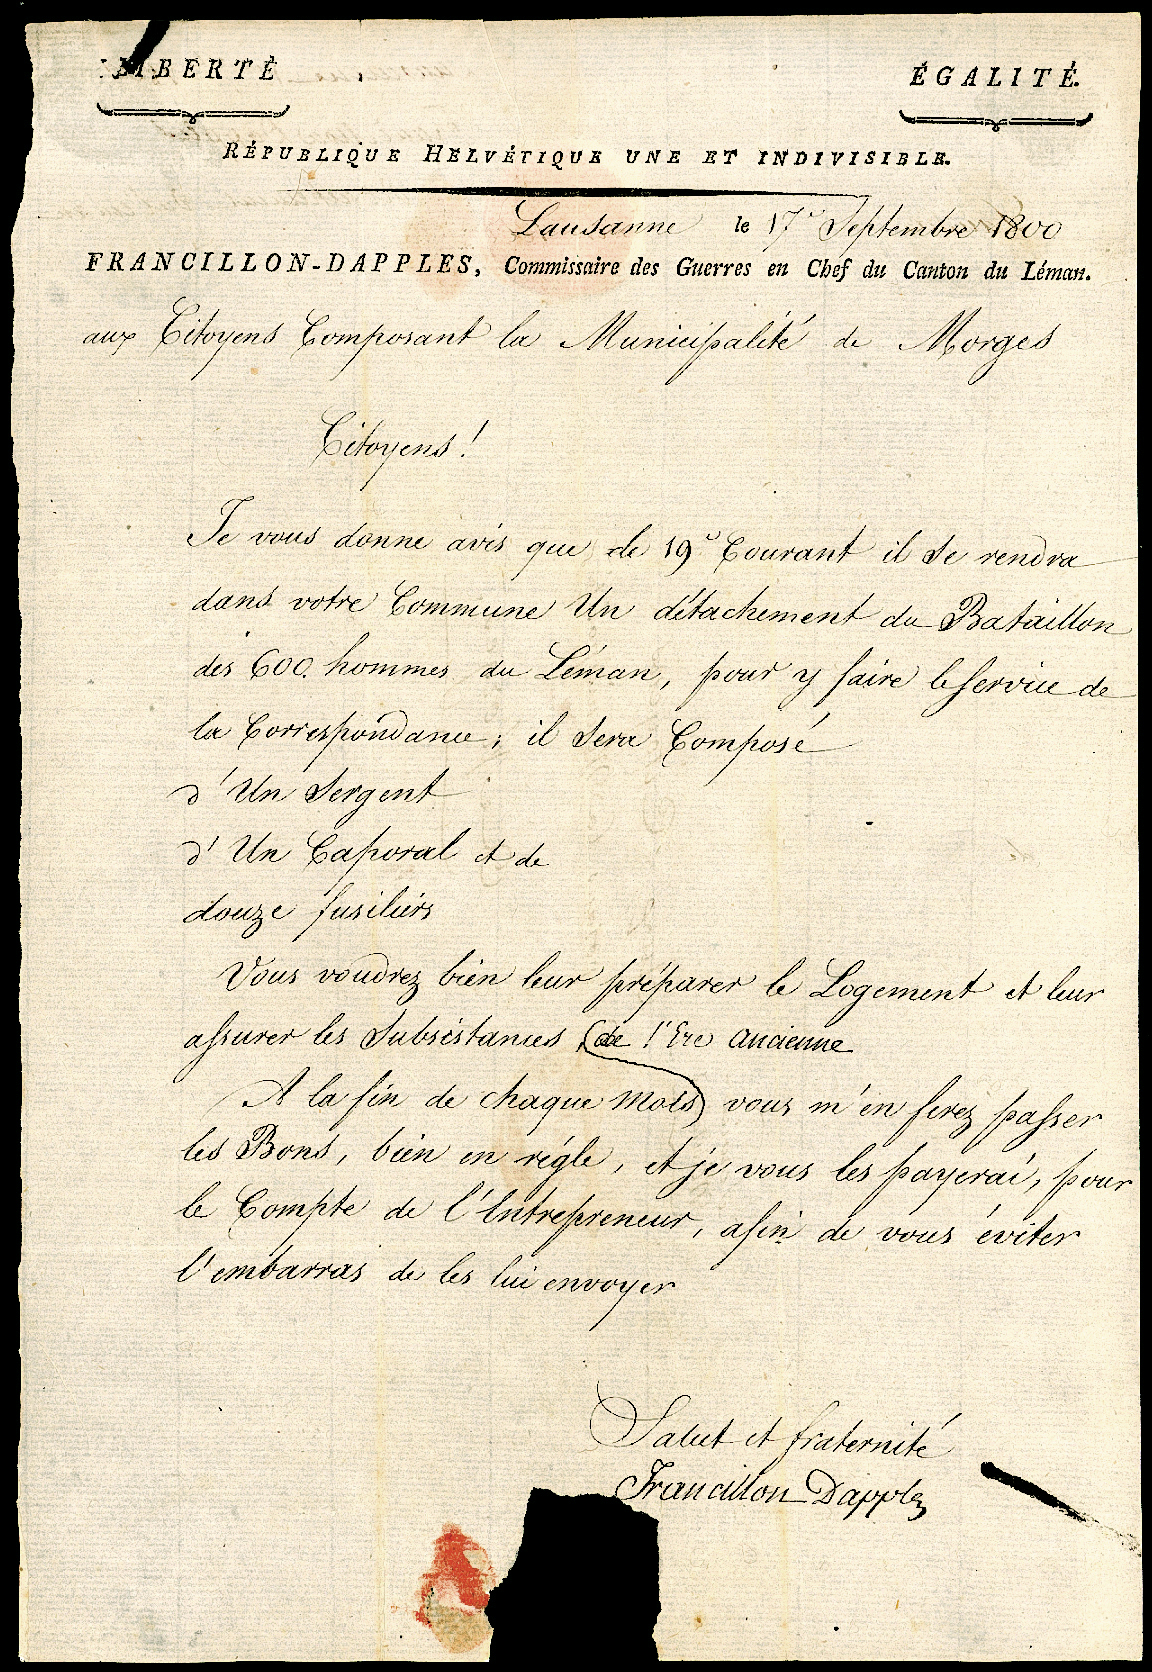 LIBERTÉ
ÉGALITÉ.
RÉPUBLIQUE HELVÉTIQUE UNE ET INDIVISIBLE.
Lausanne le 17e Septembre 1800
FRANCILLON-DAPPLES, Commissaire des Guerres en Chef du Canton du Léman.
aux Citoyens Composant la Municipalité de Morges
Citoyens!
Je vous donne avis que le 19e Courant il se rendra
dans votre Commune Un détachement du Bataillon
des 600. hommes du Léman, pour y faire le service de
la Correspondance; il sera Composé
d'Un Sergent
d'Un Caporal et de
douze fusiliers
Vous voudrez bien leur préparer le Logement et leur
assurer les Subsistances (de l'Ere ancienne
A la fin de chaque Mois) vous m'en ferez passer
les Bons, bien en régle, et je vous les payerai, pour
le Compte de l'Entrepreneur, afin de vous éviter
l'embarras de les lui envoyer
Salut et fraternité
Francillon-Dapples